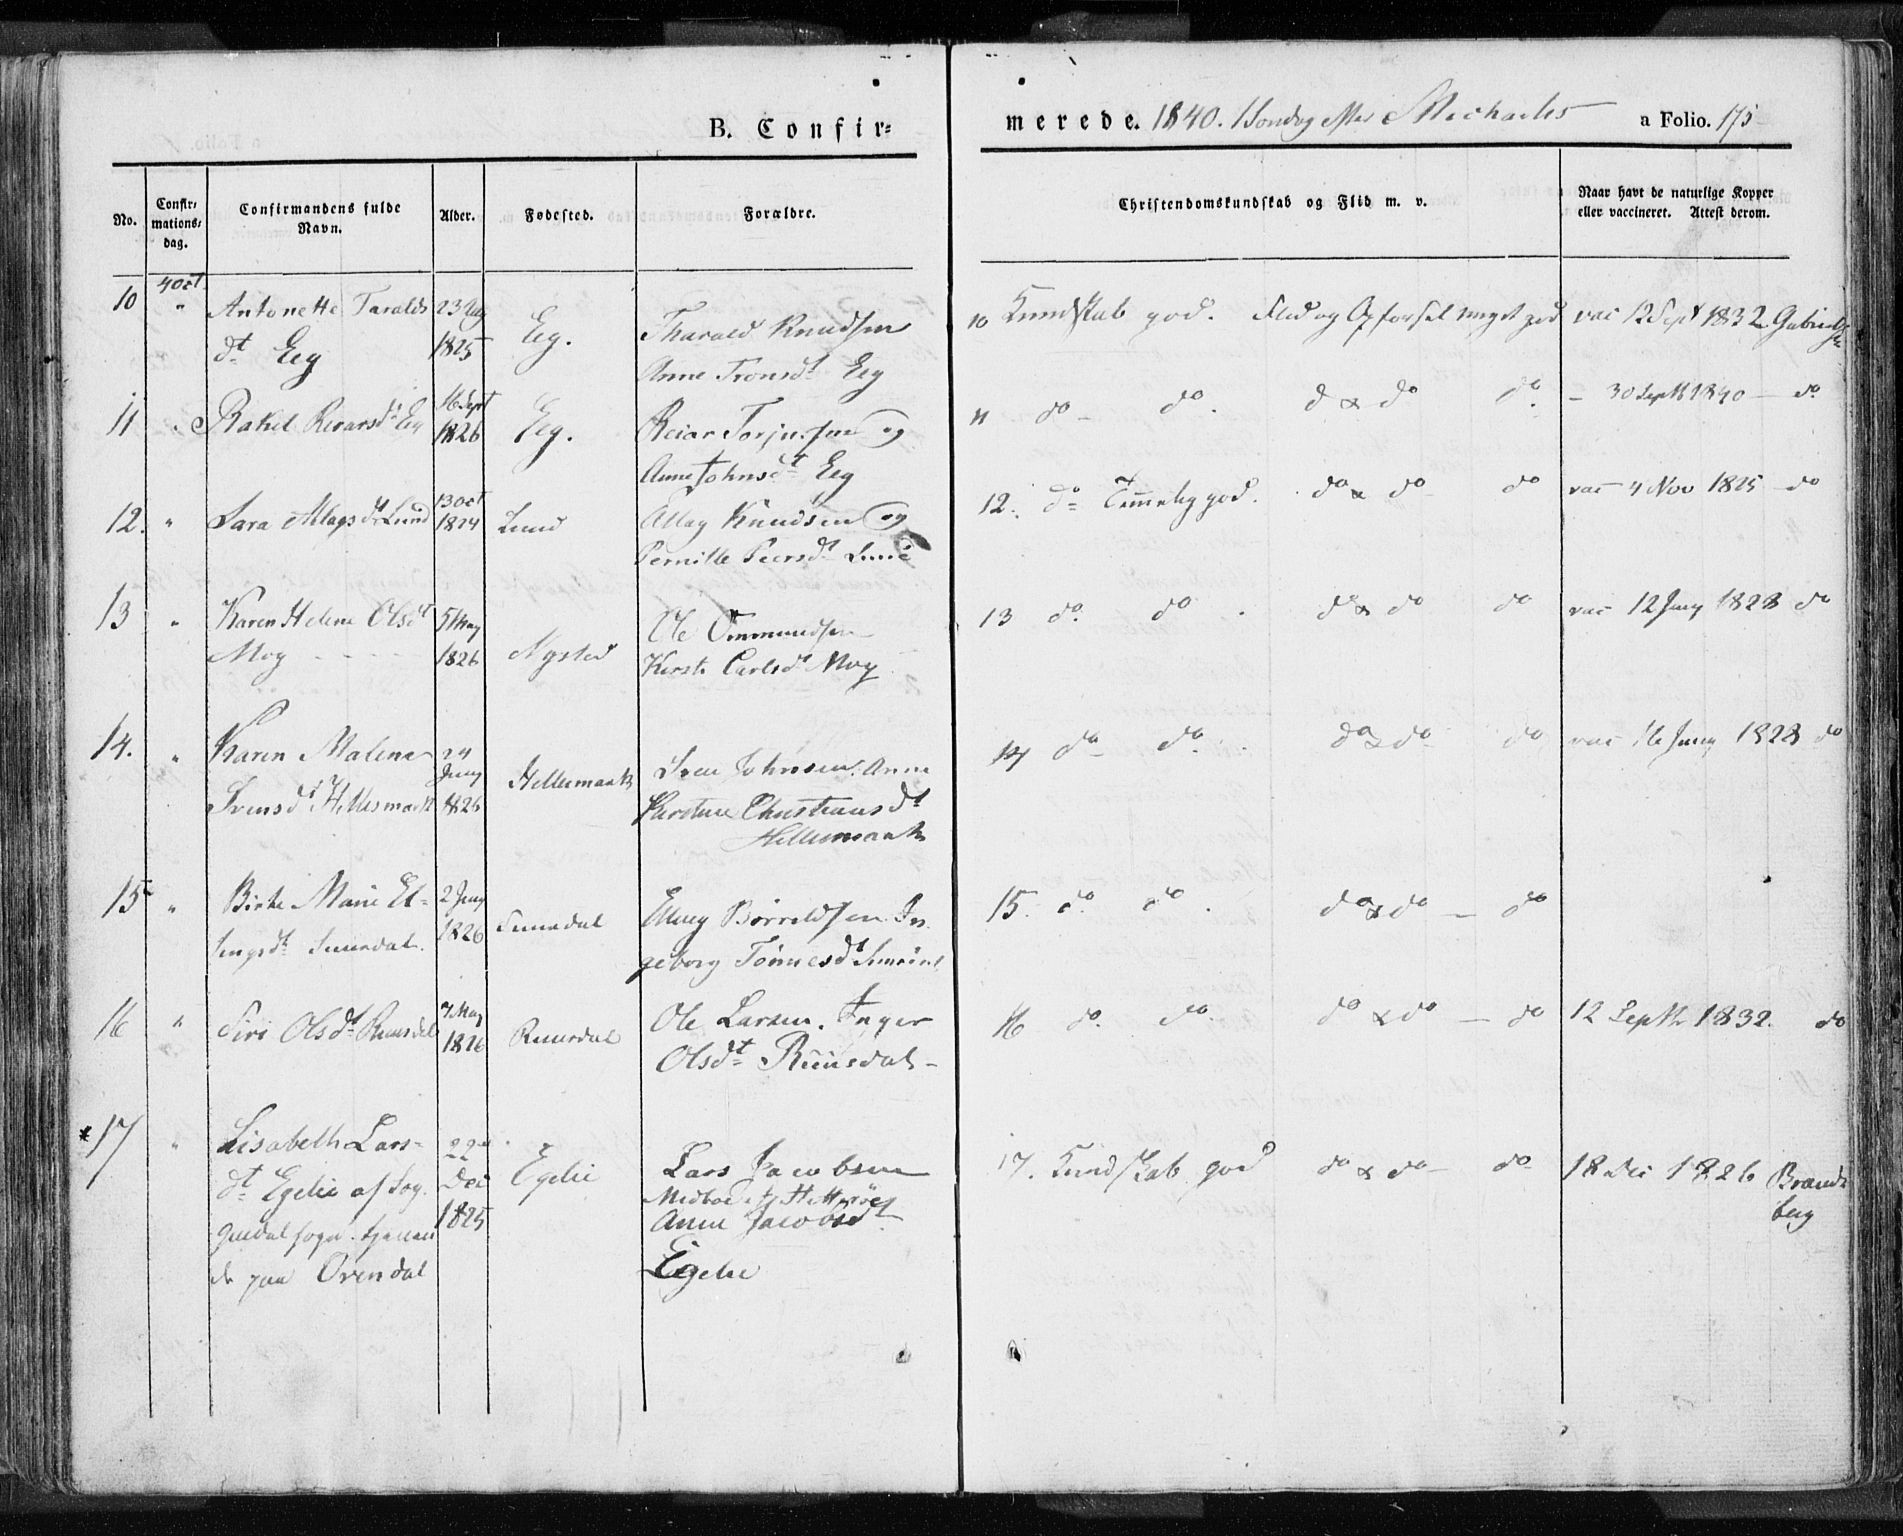 B. Confir=
merede. 1840. Sondag efter Michaelis a Folio. 175
No.
Confir=
mations=
dag.
Confirmandens fulde
Navn.
Alder.
Fødested.
Forældre.
Christendomskundskab og Flid m. v.
Naar havt de naturlige Kopper
eller vaccineret. Attest derom.
4 Oct
10 " Antonette Taralds 23 Aug
dt Eeg 1825 Eeg. Tharald Knudsen
Anne Tronsdt Eeg
10 Kundskab god. Flid og Opførsel meget god vac 12 Sept 1832 Gabriels
11 " Rakel Reiarsdt Eeg 16 Sept
1826 Eeg. Reiar Torjusen og
Anne Johnsdt Eeg
11 do do. do & do do. – 30 Septb 1840 – do
12. " Sara Allagsdt Lund 13 Oct
1824 Lund Allag Knudsen og
Pernille Peersdt Lund
12. do Temelig god. do & do do vac 4 Nov 1825 – do
13 " Karen Helene Olsdt 5 May
Moy - - - - 1826 Nysted Ole Ommundsen
Kirste Carlsdt Moy
13 do. do. do & do do vac 12 Juny 1828 do
14. " Karen Malena 24
Juny
Svensdt Hellesmark 1826 Hellesmark Sven Johnsen. Anna
Karstine Christiansdt
Hellesmark
14 do do. do & do do vac 16 Juny 1828 do
15 " Birte Marie El=
lingsdt Sunndal. 2 Juny
1826 Sunndal Elling Børreldsen In
geborg Tønnesdt
15. do. do. do & do – do
16 " Siri Olsdt Ruusdal 7 May
1826 Ruusdal Ole Larsen. Inger
Olsdt Ruusdal –
16 do. do. do & do – do 12 Septb 1832. do
17 " Lisabeth Lars=
dt Egelie af Sog
gndal sogn. tjenen
de paa Ovendal
22
Dec
1825 Egelie Lars Jacobsen
Anne Jacobsdt
Egelie
17. Kundskab god do & do – do 18 Dec 1826 Brands
berg